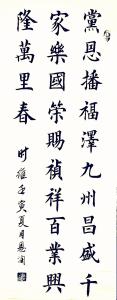 黨恩播福澤九州昌盛千
家樂國榮賜禎祥百業興
隆萬里春
时維壬寅夏月恩